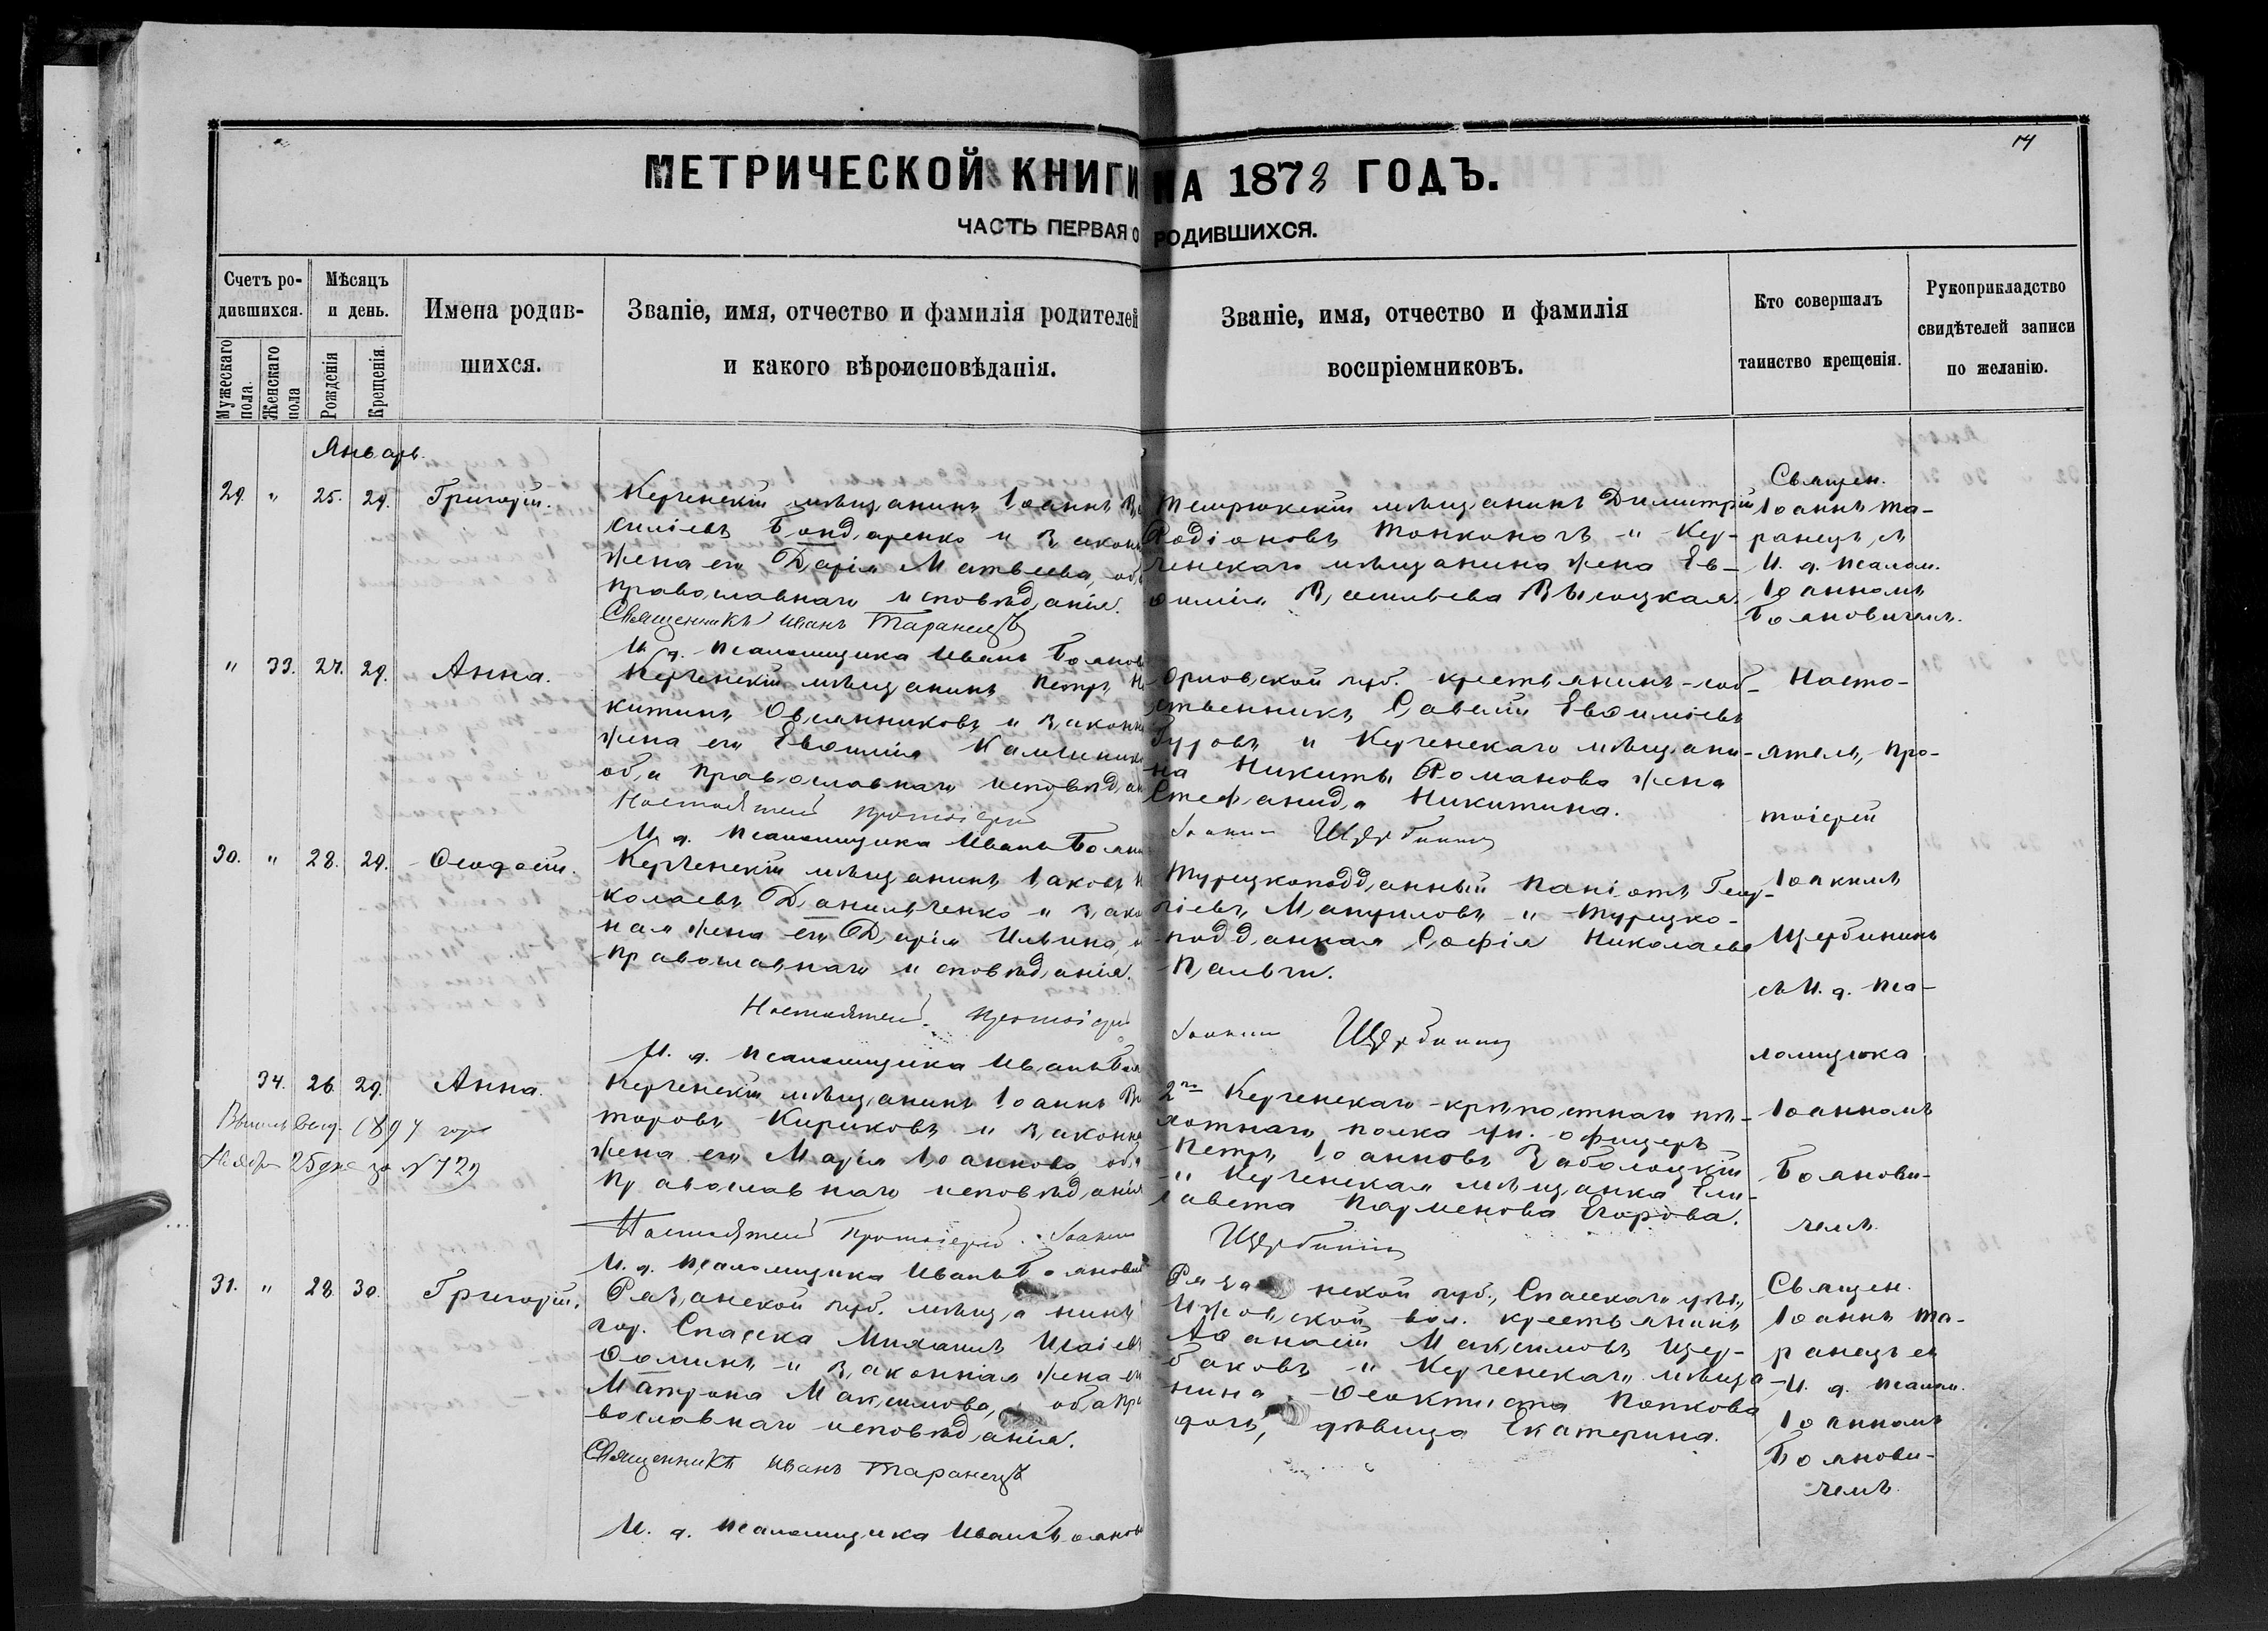 14
МЕТРИЧЕСКОЙ КНИГИ НА 1878 ГОДЪ.
ЧАСТЬ ПЕРВАЯ О РОДИВШИХСЯ.
Счетъ ро-
дившихся.
Мужескаго
пола.
Женскаго
пола
Мѣсяцъ
и день.
Рожденія
Крещенія.
Имена родив-
шихся.
Званіе, имя, отчество и фамилія родителей
и какого вѣроисповѣданія.
Званіе, имя, отчество и фамилія
воспріемниковъ.
Кто совершалъ
таинство крещенія.
Рукоприкладство
свидѣтелей записи
по желанію.
Январь.
29. " 25. 29. Григорій.
Керченскій мѣщанинъ Іоаннъ Ва
силіевъ Бондаренко и законн
жена его Дарія Матвеева, оба
православнаго исповѣданія.
Священникъ Иванъ Таранецъ
И. д. псаломщика Иванъ Боянов
Темрюкскій мѣщанинъ Димитрій
Родіоновъ Тонконогъ и Кер-
ченскаго мѣщанина жена Ев-
ѳимія Васильева Высоцкая.
Священ.
Іоаннъ Та-
ранецъ, съ
И. д. псалом.
Іоанномъ
Бояновичемъ.
" 33. 27. 29. Анна.
Керченскій мѣщанинъ Петръ Ни
китинъ Овсянниковъ и законн
жена его Евѳимія
оба православнаго исповѣдан
Настоятель протоіерей
И. д. псаломщика Иванъ Боян
Орловской губ. крестьянинъ-соб-
ственникъ Савелій Евѳиміевъ
Гуровъ и Керченскаго мѣщани-
на Никиты Романова жена
Стефанида Никитина.
Іоакимъ Щербининъ
Настоятель, Про-
тоіерей
Іоакимъ
Щербининъ
съ И. д. пса-
ломщика
Іоанномъ
Боянови-
чемъ.
30. " 28. 29. Ѳеодосій.
Керченскій мѣщанинъ Іаковъ Н
колаевъ Данильченко и зако
ная жена его Дарія Ильина, о
православнаго исповѣданія.
Настоятель Протоіерей
И. д. псаломщика Иванъ Боя
Турецкоподданный Паніотъ Геор-
гіевъ Мануиловъ и турецко-
подданная Софія Николаева
Іоакимъ Щербининъ
34. 26. 29. Анна.
1897 года
25 дня за № 729
Керченскій мѣщанинъ Іоаннъ Ви
торовъ Кириковъ и законна
жена его Марія Іоаннова, оба
православнаго исповѣданія
Настоятель Протоіерей Іоакимъ
И. д. псаломщика Иванъ Боянович
2го Керченскаго крѣпостнаго пѣ-
хотнаго полка ун. офицеръ
Петръ Іоанновъ Заболоцкій
и Керченская мѣщанка Ели-
савета Парменова Егорова.
Щербининъ
31. " 28. 30. Григорій.
Рязанской губ. мѣщанинъ
гор. Спасска Михаилъ Исаіевъ
Ѳоминъ и законная жена его
Матрона Максимова, оба пра
вославнаго исповѣданія.
Священникъ Иванъ Таранецъ
И. д. псаломщика Иванъ Боянов
Рязанской губ., Спасскаго уѣз.,
Ижовской вол. крестьянинъ
Аѳанасій Максимовъ Щер-
баковъ и Керченскаго мѣща-
нина Ѳеоктиста Попкова
дочь, дѣвица Екатерина.
Священ.
Іоаннъ Та-
ранецъ съ
И. д. псалом.
Іоанномъ
Боянови-
чемъ.